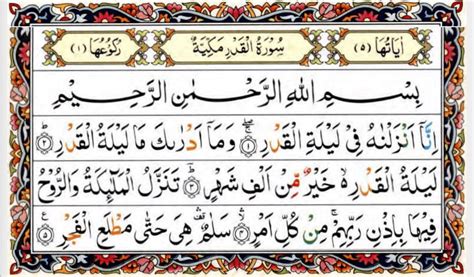 اٰيَاتُهَا (٥) سُوْرَةُ الْقَدْرِ مَكِّيَّةٌ رُكُوْعُهَا (١)
بِسْمِ اللهِ الرَّحْمٰنِ الرَّحِيْمِ
اِنَّاۤ اَنْزَلْنٰهُ فِىْ لَيْلَةِ الْقَدْرِ ۚۖ ﴿١﴾ وَمَاۤ اَدْرٰىكَ مَا لَيْلَةُ الْقَدْرِ ؕ ﴿٢﴾
لَيْلَةُ الْقَدْرِ ۙ خَيْرٌ مِّنْ اَلْفِ شَهْرٍ ؕ ﴿٣﴾ تَنَزَّلُ الْمَلٰٓئِكَةُ وَالرُّوْحُ
فِيْهَا بِاِذْنِ رَبِّهِمْ ۚ مِنْ كُلِّ اَمْرٍ ۛ ﴿٤﴾ سَلٰمٌ ۛ هِىَ حَتّٰى مَطْلَعِ الْفَجْرِ ﴿٥﴾